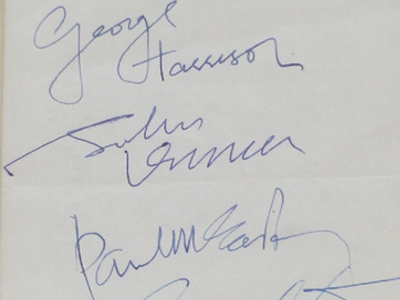 George
Harrison
John
Lennon
Paul McCartney